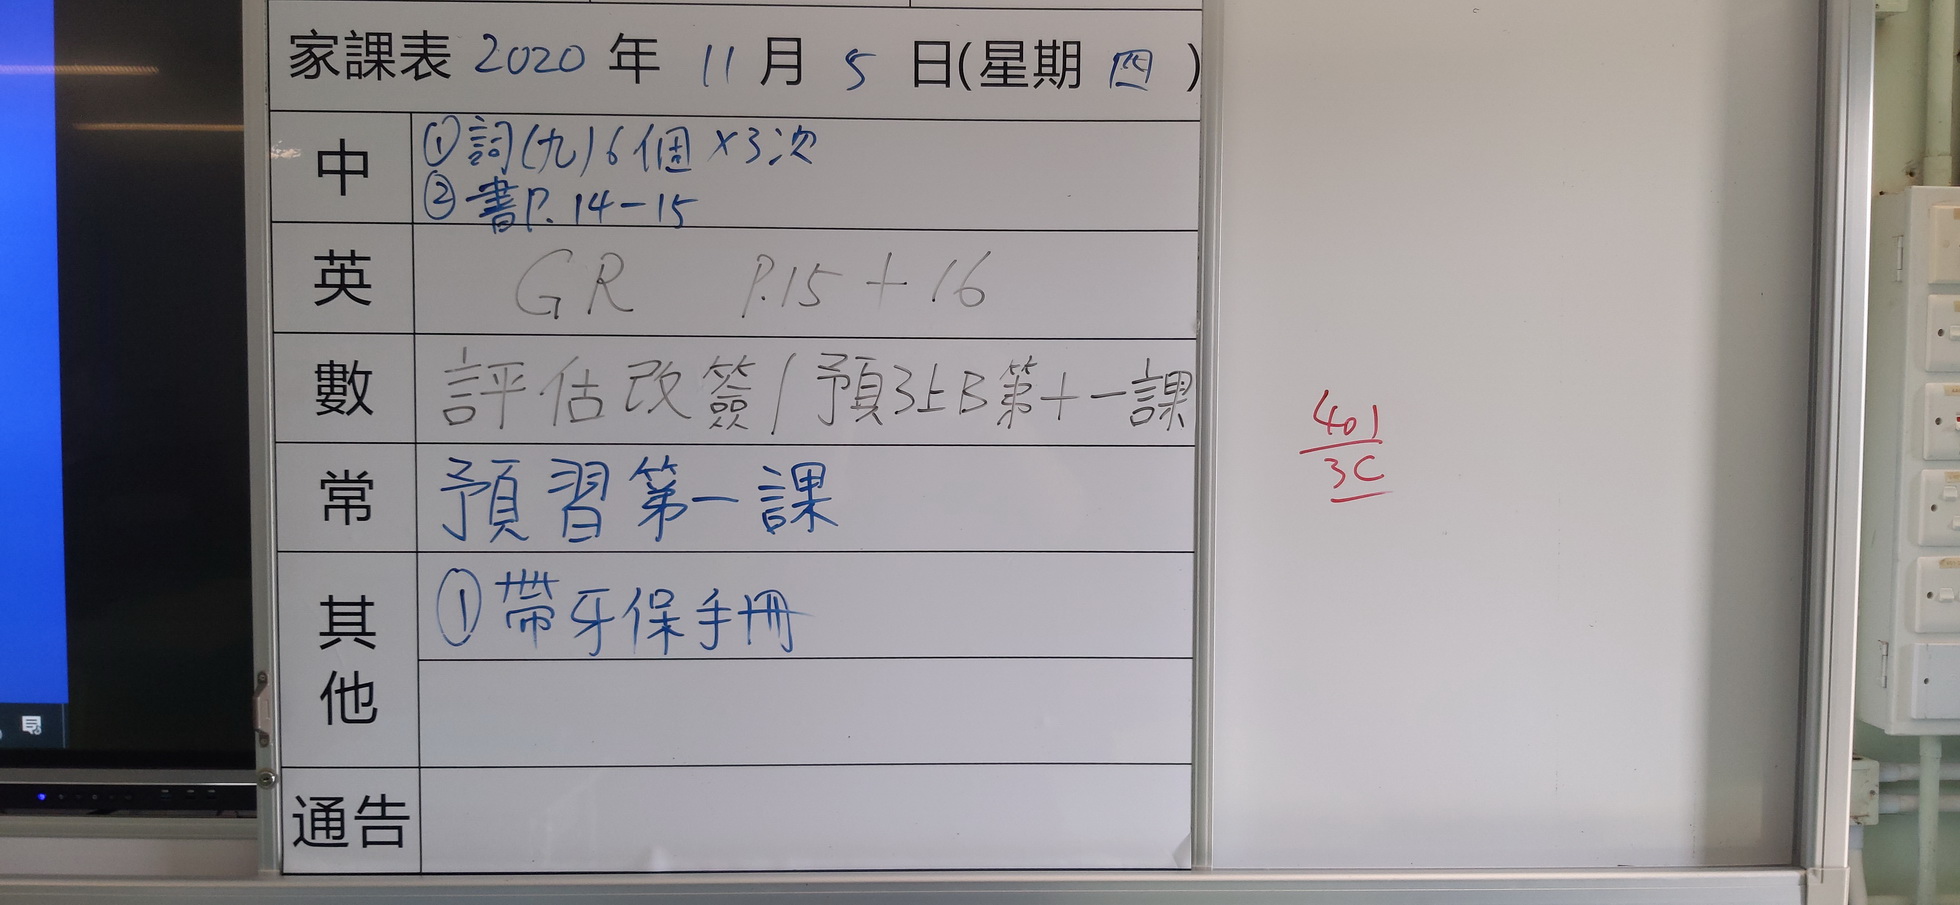 家課表 2020 年 11 月 5 日(星期 四 )
中
①詞(九)6個×3次
②書P.14-15
英
GR P.15 + 16
數
評估改簽/預3上B第十一課
常
預習第一課
其他
①帶牙保手冊
通告
401
3C